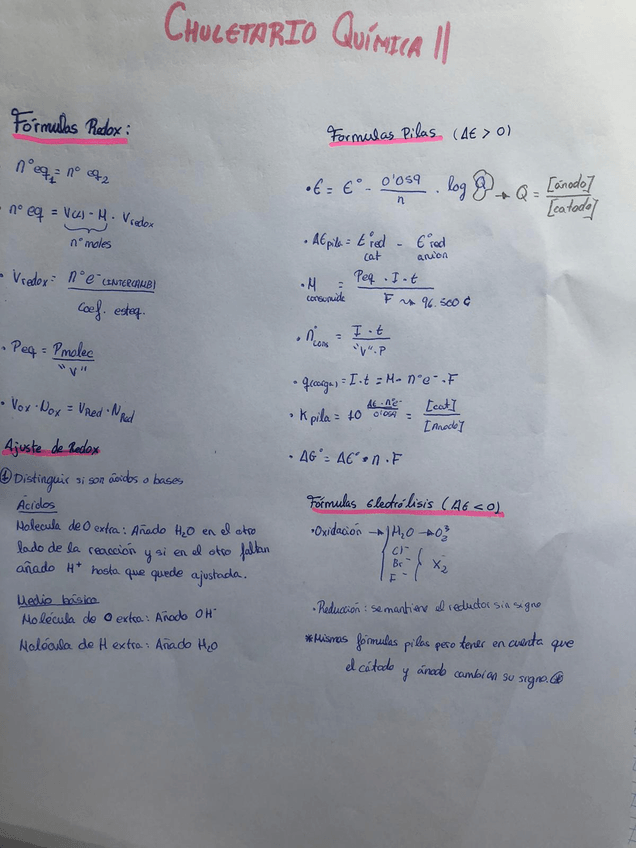 CHULETARIO QUÍMICA II
Fórmulas Redox:
nºeq₁ = nº eq₂
• nº eq = V(L) - M . Vredox
nº moles
• Vredox = nº e⁻ (INTERCAMB) / Coef. esteq.
• Peq = Pmolec / "V"
• Vox · Nox = VRed · NRed
Ajuste de Redox
① Distinguir si son ácidos o bases
Ácidos
Molecula de O extra: Añado H₂O en el otro
lado de la reacción y si en el otro faltan
añado H⁺ hasta que quede ajustada.
Medio básico
Molécula de O extra: Añado OH⁻
Molécula de H extra: Añado H₂O
Formulas Pilas (ΔE > 0)
• E = Eº - 0'059 / n · log Q → Q = [ánodo] / [catodo]
• ΔEpila = Eºred cat - Eºred
• M consumida = Peq · I · t / F → 96.500 C
• nºcons = I · t / "V" · F
• q(carga) = I · t = M · nº e⁻ · F
• Kpila = 10 ΔE · nºe⁻ / 0'059 = [cat] / [Ánodo]
• ΔGº = ΔEº · n · F
Fórmulas electrólisis (ΔE < 0)
• Oxidación → H₂O → O₂
Cl⁻
Br⁻
F⁻
X₂
• Reducción: se mantiene el reductor sin signo
*Mismas fórmulas pilas pero tener en cuenta que
el cátodo y ánodo cambian su signo.